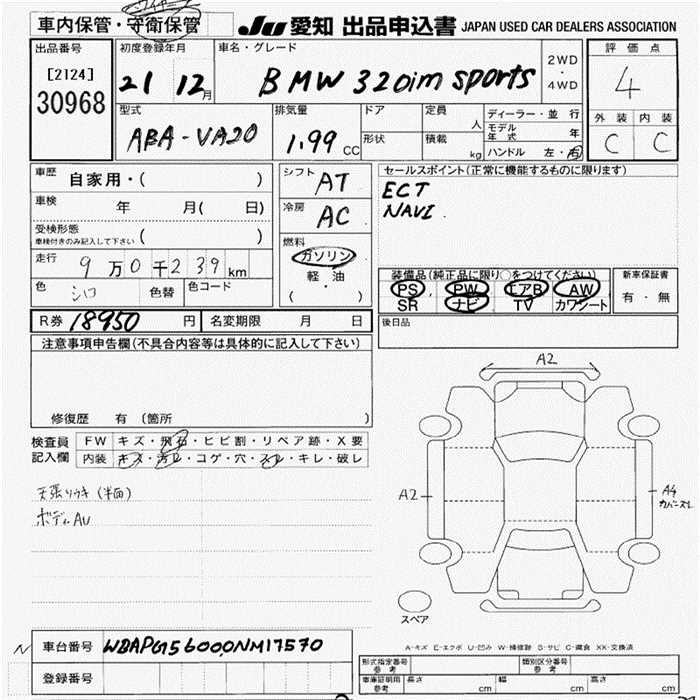 車内保管・守衛保管
JU 愛知 出品申込書 JAPAN USED CAR DEALERS ASSOCIATION
出品番号
[2124]
30968
初度登録年月
21 12月
車名・グレード
BMW 320im sports
2WD
・
4WD
評価点
4
外装 内装
C C
型式
ABA-VA20
排気量
1.99 CC
ドア
形状
定員 人
積載 kg
ディーラー・並行
モデル年式 年
ハンドル 左・右
車歴 自家用・( )
車検 年 月( 日)
受検形態
車検付きのみ記入して下さい ( )
走行 9万0千239km
色 シロ 色替 色コード
シフト AT
冷房 AC
燃料
ガソリン
軽・油
( )
セールスポイント(正常に機能するものに限ります)
ECT
NAVI.
装備品(純正品に限り○をつけてください)
PS PW エアB AW
SR ナビ TV カワシート
新車保証書
有・無
R券 18950円 名変期限 月 日
後日品
注意事項申告欄(不具合内容等は具体的に記入して下さい)
修復歴 有(箇所 )
検査員 FW キズ・飛石・ヒビ割・リペア跡・X要
記入欄 内装 キズ・汚レ・コゲ・穴・スレ・キレ・破レ
天張りウキ(半面)
ボディAU
A2
A2
A4
スペア
A-キズ E-エクボ U-凹み W-補修跡 S-サビ C-腐食 XX-交換済
N 車台番号 WBAPG56000NM17570
登録番号
形式指定番号 参考
類別区分番号 参考
車庫証明用 参考 長さ cm 幅 cm 高さ cm